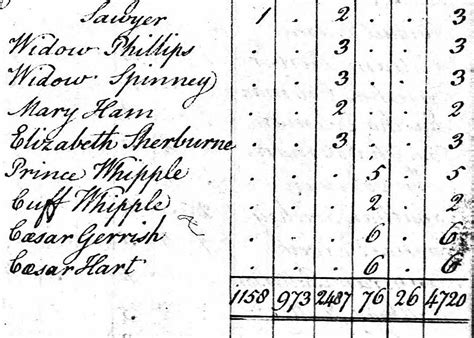 Sawyer 1 . 2 . . 3
Widow Phillips . . 3 . . 3
Widow Spinney . . 3 . . 3
Mary Ham . . 2 . . 2
Elizabeth Sherburne . . 3 . . 3
Prince Whipple . . . 5 . 5
Cuff Whipple . . . 2 . 2
Cæsar Gerrish . . . 6 . 6
Cæsar Hart . . . 6 . 6
1158 973 2487 76 26 4720